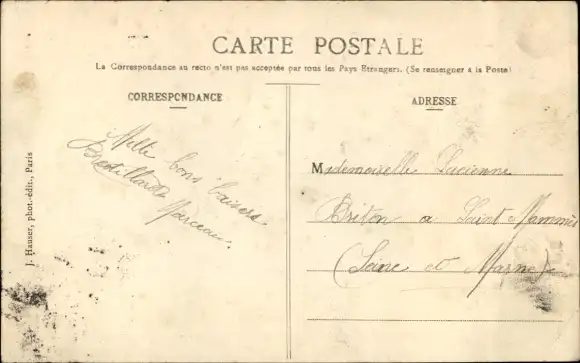 CARTE POSTALE
La Correspondance au recto n'est pas acceptée par tous les Pays Etrangers. (Se renseigner à la Poste)
CORRESPONDANCE
ADRESSE
Mille bons baisers
Marceau
Mademoiselle Lucienne
Briton a Saint Mammès
(Seine et Marne)
J. Hauser, phot.-édit., Paris